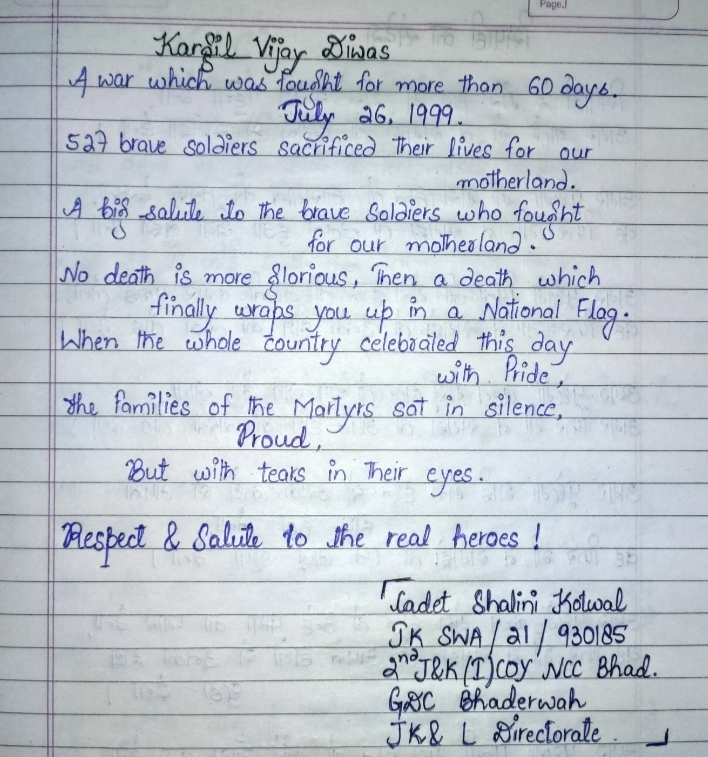 Page.
Kargil Vijay Diwas
A war which was fought for more than 60 days.
July 26, 1999.
527 brave soldiers sacrificed their lives for our
motherland.
A big salute to the brave Soldiers who fought
for our motherland.
No death is more glorious, Then a death which
finally wraps you up in a National Flag.
When the whole country celebrated this day
with Pride,
the families of the Martyrs sat in silence,
Proud,
But with tears in their eyes.
Respect & Salute to the real heroes !
Cadet Shalini Kotwal
JK SWA / 21 / 930185
2nd J&K (I) COY NCC Bhad.
GDC Bhaderwah
JK& L Directorate.